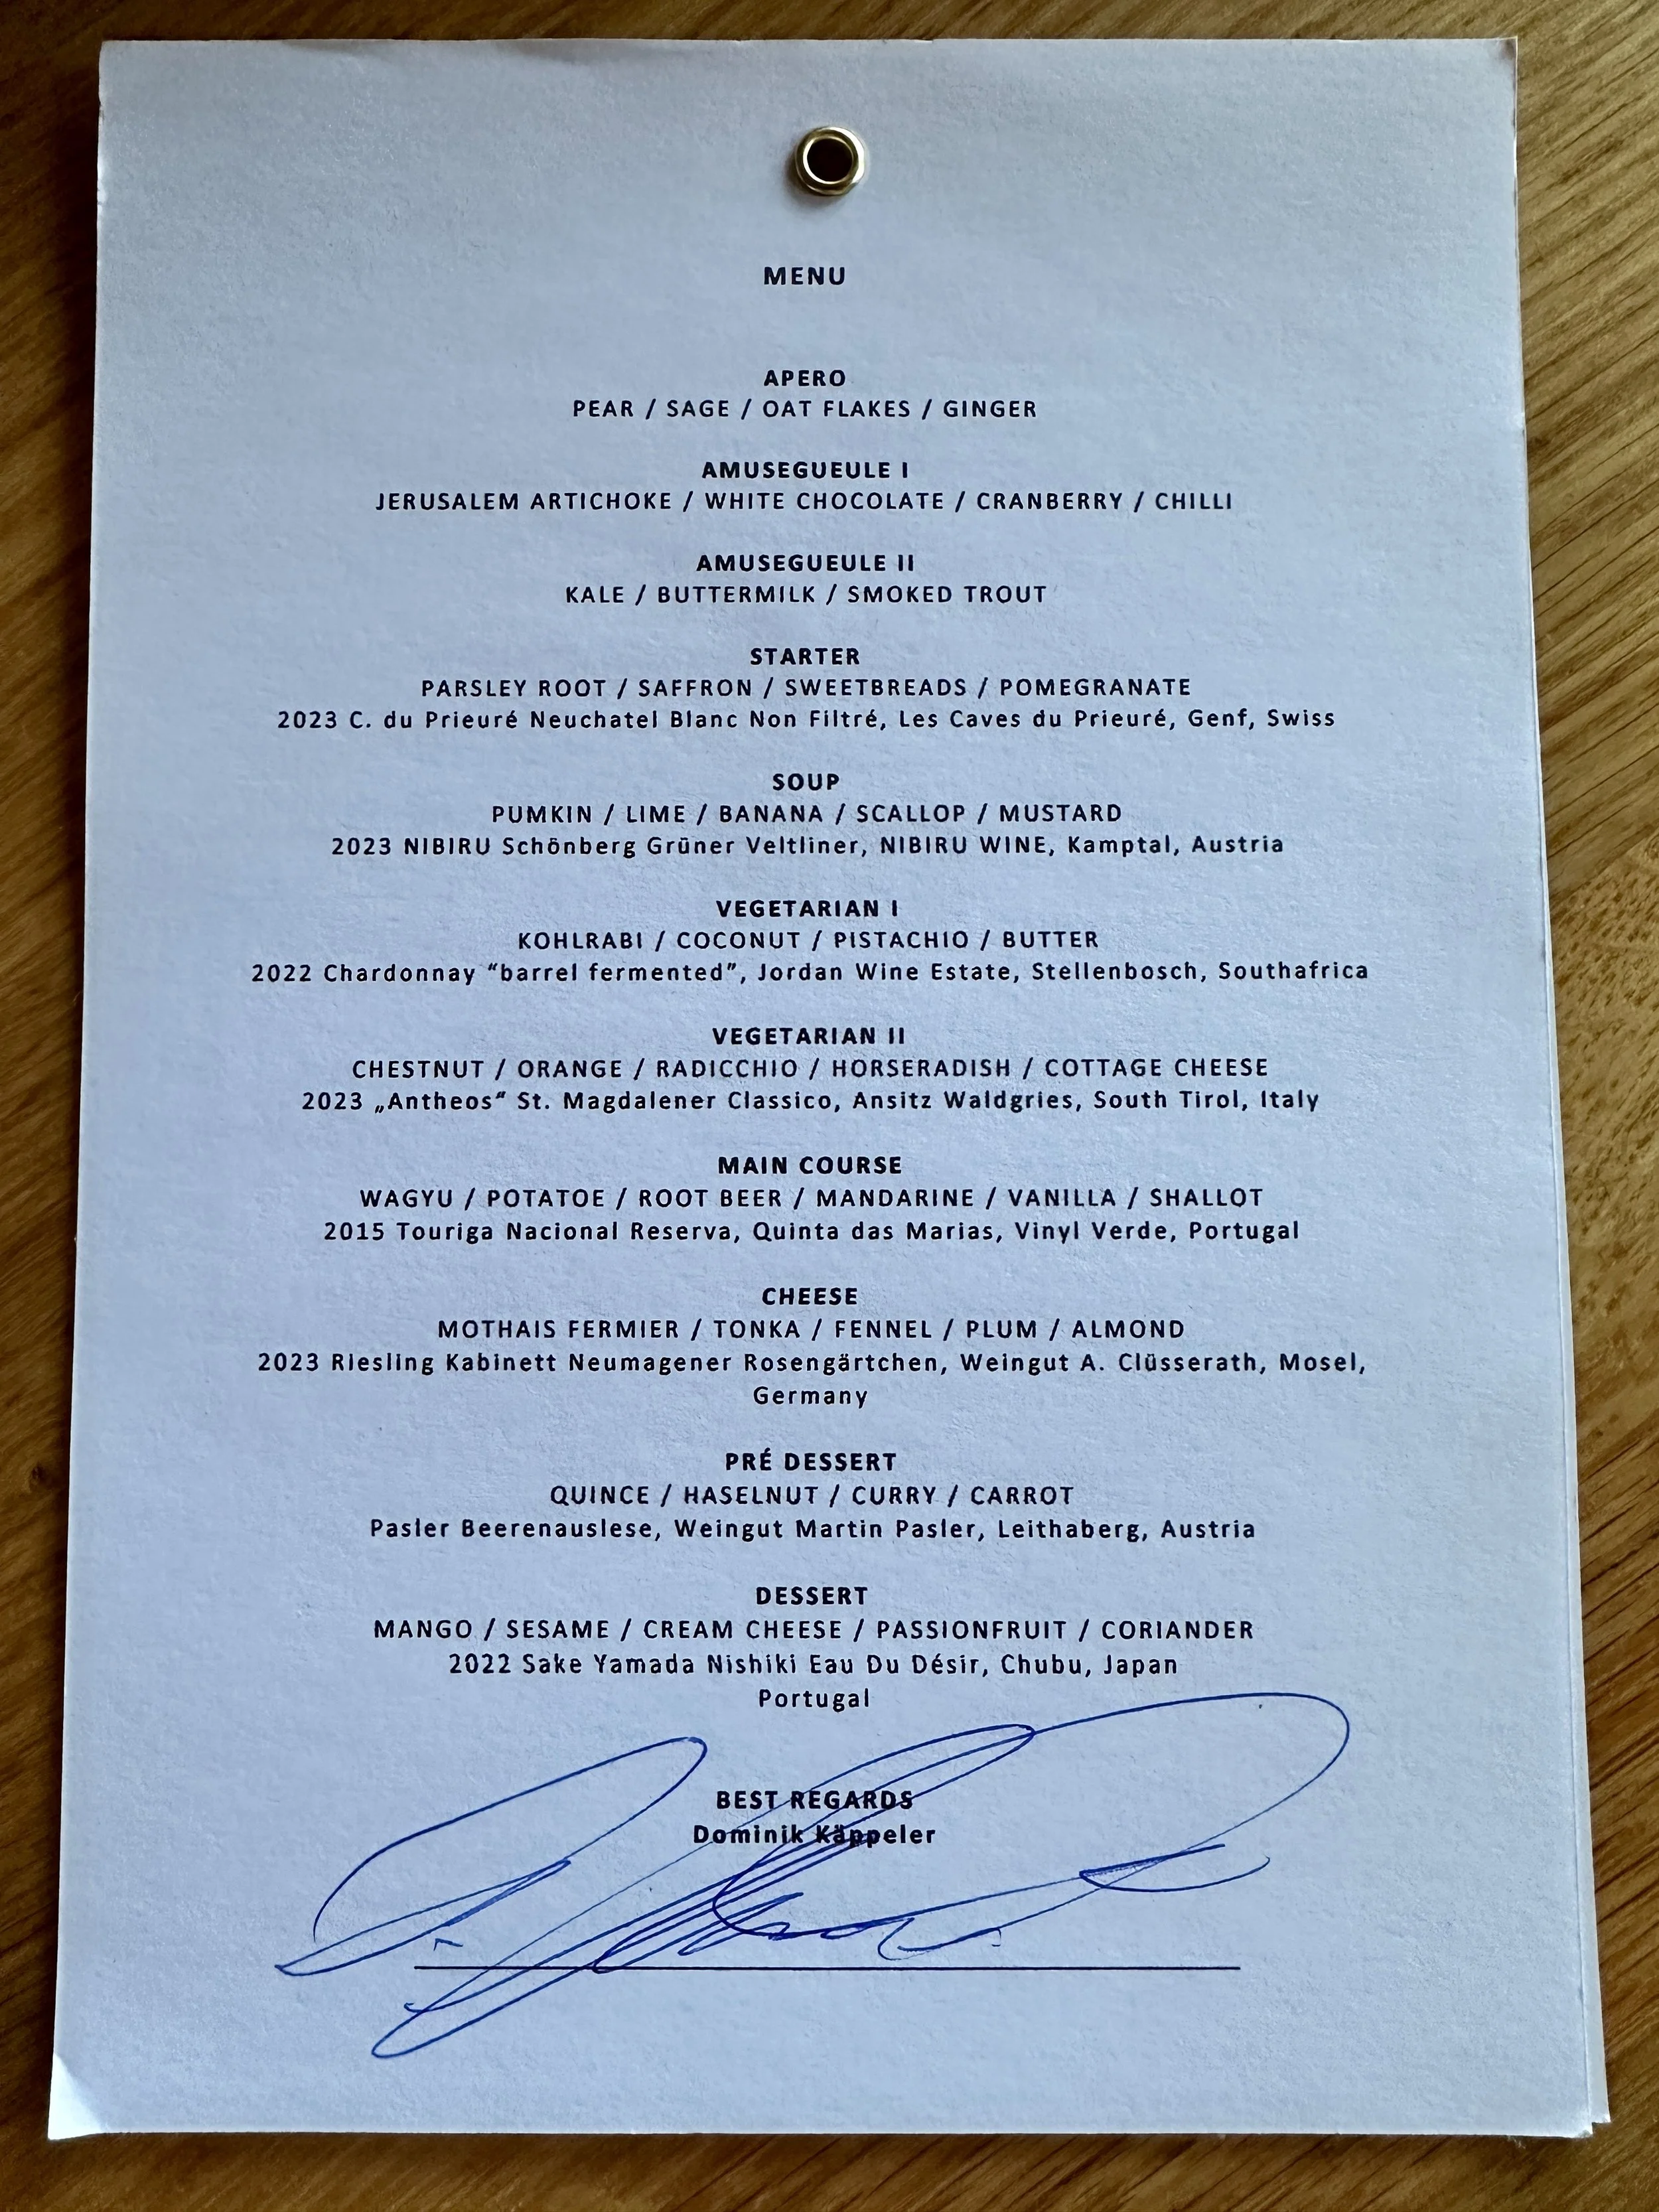 MENU
APERO
PEAR / SAGE / OAT FLAKES / GINGER
AMUSEGUEULE I
JERUSALEM ARTICHOKE / WHITE CHOCOLATE / CRANBERRY / CHILLI
AMUSEGUEULE II
KALE / BUTTERMILK / SMOKED TROUT
STARTER
PARSLEY ROOT / SAFFRON / SWEETBREADS / POMEGRANATE
2023 C. du Prieuré Neuchatel Blanc Non Filtré, Les Caves du Prieuré, Genf, Swiss
SOUP
PUMKIN / LIME / BANANA / SCALLOP / MUSTARD
2023 NIBIRU Schönberg Grüner Veltliner, NIBIRU WINE, Kamptal, Austria
VEGETARIAN I
KOHLRABI / COCONUT / PISTACHIO / BUTTER
2022 Chardonnay “barrel fermented”, Jordan Wine Estate, Stellenbosch, Southafrica
VEGETARIAN II
CHESTNUT / ORANGE / RADICCHIO / HORSERADISH / COTTAGE CHEESE
2023 „Antheos“ St. Magdalener Classico, Ansitz Waldgries, South Tirol, Italy
MAIN COURSE
WAGYU / POTATOE / ROOT BEER / MANDARINE / VANILLA / SHALLOT
2015 Touriga Nacional Reserva, Quinta das Marias, Vinyl Verde, Portugal
CHEESE
MOTHAIS FERMIER / TONKA / FENNEL / PLUM / ALMOND
2023 Riesling Kabinett Neumagener Rosengärtchen, Weingut A. Clüsserath, Mosel,
Germany
PRÉ DESSERT
QUINCE / HASELNUT / CURRY / CARROT
Pasler Beerenauslese, Weingut Martin Pasler, Leithaberg, Austria
DESSERT
MANGO / SESAME / CREAM CHEESE / PASSIONFRUIT / CORIANDER
2022 Sake Yamada Nishiki Eau Du Désir, Chubu, Japan
Portugal
BEST REGARDS
Dominik Käppeler